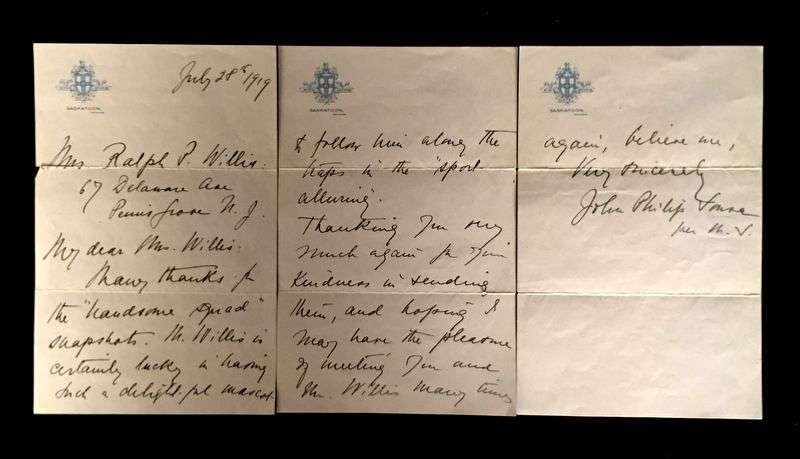 SASKATOON,
July 28th 1919
Mrs Ralph P. Willis.
67 Delaware Ave
Penns Grove N. J.
My dear Mrs. Willis.
Many thanks for
the "handsome squad"
snapshots. Mr. Willis is
certainly lucky in having
such a delightful mascot
SASKATOON,
to follow him along the
traps in the "sport
alluring".
Thanking you very
much again for your
kindness in sending
them, and hoping I
may have the pleasure
of meeting you and
Mr. Willis many times
SASKATOON,
again, believe me,
Very sincerely
John Philip Sousa
per